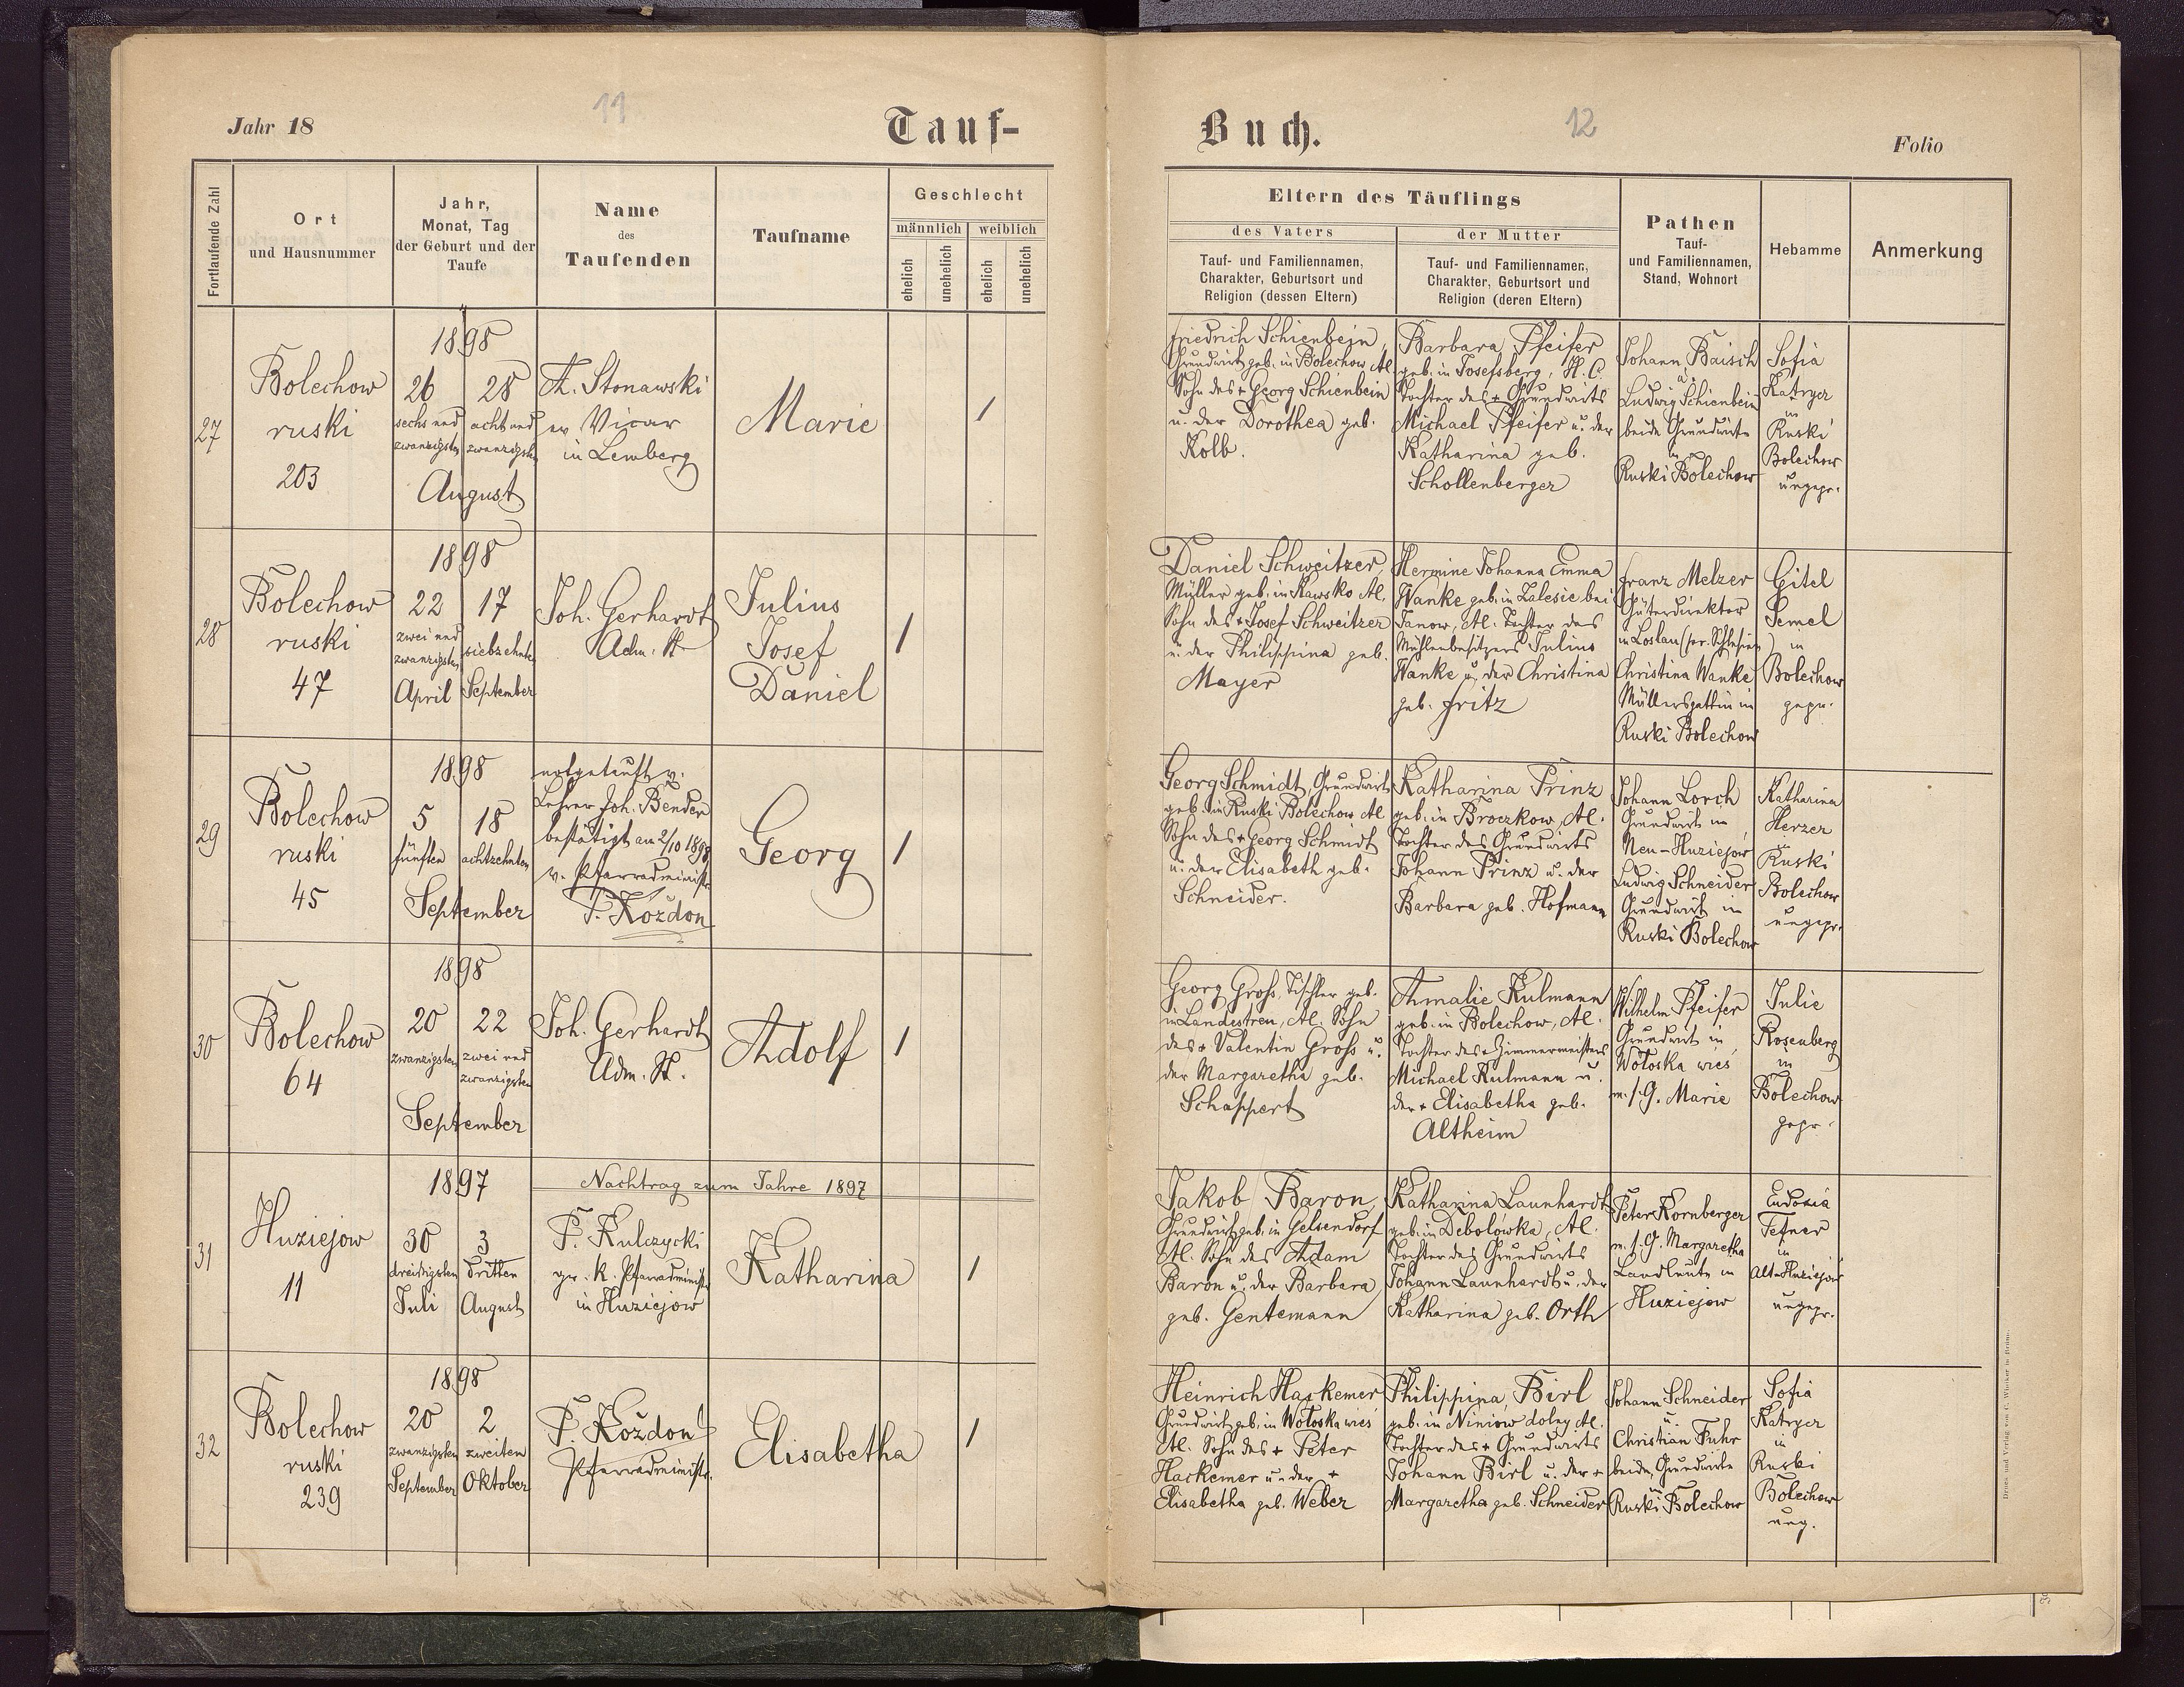 Jahr 18
11
Tauf-
Fortlaufende Zahl
Ort
und Hausnummer
Jahr,
Monat, Tag
der Geburt und der
Taufe
Name
des
Taufenden
Taufname
Geschlecht
männlich
weiblich
ehelich
unehelich
ehelich
unehelich
27
Bolechow
ruski
203
1898
26 28
sechs und acht und
zwanzigsten zwanzigsten
August
A. Stonawski
ev Vicar
in Lemberg
Marie
1
28
Bolechow
ruski
47
1898
22 17
zwei und
zwanzigsten siebzehnten
April September
Joh. Gerhardt
Adm. St
Julius
Josef
Daniel
1
29
Bolechow
ruski
45
1898
5 18
fünften achtzehnten
September
notgetauft v.
Lehrer Joh. Bender
bestätigt am 2/10 1898
v. Pfarradministr.
P. Kożdon
Georg
1
30
Bolechow
64
1898
20 22
zwanzigsten zwei und
zwanzigsten
September
Joh. Gerhardt
Adm. St.
Adolf
1
31
Huziejow
11
1897
30 3
dreißigsten dritten
Juli August
Nachtrag zum Jahre 1897
P. Kulczycki
gr. k. Pfarradministr.
in Huziejow
Katharina
1
32
Bolechow
ruski
239
1898
20 2
zwanzigsten zweiten
September Oktober
P. Kożdon
Pfarradministr.
Elisabetha
1
Buch.
12
Folio
Eltern des Täuflings
des Vaters
Tauf- und Familiennamen,
Charakter, Geburtsort und
Religion (dessen Eltern)
der Mutter
Tauf- und Familiennamen,
Charakter, Geburtsort und
Religion (deren Eltern)
Pathen
Tauf-
und Familiennamen,
Stand, Wohnort
Hebamme
Anmerkung
Friedrich Schienbein,
Grundwirt geb. in Bolechow, Al.
Sohn des + Georg Schienbein
u. der Dorothea geb.
Kolb.
Barbara Pfeifer
geb. in Josefsberg, H. C.
Tochter des + Grundwirts
Michael Pfeifer u. der
Katharina geb.
Schollenberger
Johann Baisch
u.
Ludwig Schienbein
beide Grundwirte
in
Ruski Bolechow
Sofia
Katryer
in
Ruski
Bolechow
ungepr.
Daniel Schweitzer,
Müller geb. in Rawsko Al.
Sohn des + Josef Schweitzer
u. der Philippina geb.
Mayer
Hermine Johanna Emma
Wanke geb. in Zalesie bei
Janow, Al. Tochter des
Mühlenbesitzers Julius
Wanke u. der Christina
geb. Fritz
Franz Melzer
Güterdirektor
in Loslau (pr. Schlesien)
Christina Wanke
Müllersgattin in
Ruski Bolechow
Gitel
Semel
in
Bolechow
gepr.
Georg Schmidt, Grundwirt
geb. in Ruski Bolechow Al
Sohn des + Georg Schmidt
u. der Elisabeth geb.
Schneider.
Katharina Prinz
geb. in Broczkow, Al.
Tochter des Grundwirts
Johann Prinz u. der
Barbara geb. Hofmann
Johann Lorch
Grundwirt in
Neu-Huziejow
Ludwig Schneider
Grundwirt in
Ruski Bolechow
Katharina
Herzer
in
Ruski
Bolechow
ungepr.
Georg Groß, Tischler geb.
in Landestreu, Al. Sohn
des + Valentin Groß u.
der Margaretha geb.
Schappert
Amalie Kulmann
geb. in Bolechow, Al.
Tochter des + Zimmermeisters
Michael Kulmann u.
der + Elisabetha geb.
Altheim
Wilhelm Pfeifer
Grundwirt in
Wołoska wieś
m. s. G. Marie
Julie
Rosenberg
in
Bolechow
gepr.
Jakob Baron,
Grundwirt geb. in Gelsendorf
Al. Sohn des Adam
Baron u. der Barbara
geb. Gentemann
Katharina Launhardt
geb. in Debolówka, Al.
Tochter des Grundwirts
Johann Launhardt u. der
Katharina geb. Orth
Peter Kornberger
m. s. G. Margaretha
Landleute in
Huziejow
Eudoxia
Fetner
in
Alt-Huziejow
ungepr.
Heinrich Haskemer
Grundwirt geb. in Wołoska wieś
Al. Sohn des + Peter
Haskemer u. der +
Elisabetha geb. Weber
Philippina Birl
geb. in Niniow dolny Al.
Tochter des + Grundwirts
Johann Birl u. der +
Margaretha geb. Schneider
Johann Schneider
u.
Christian Fuhr
beide Grundwirte
in
Ruski Bolechow
Sofia
Katryer
in
Ruski
Bolechow
ung.